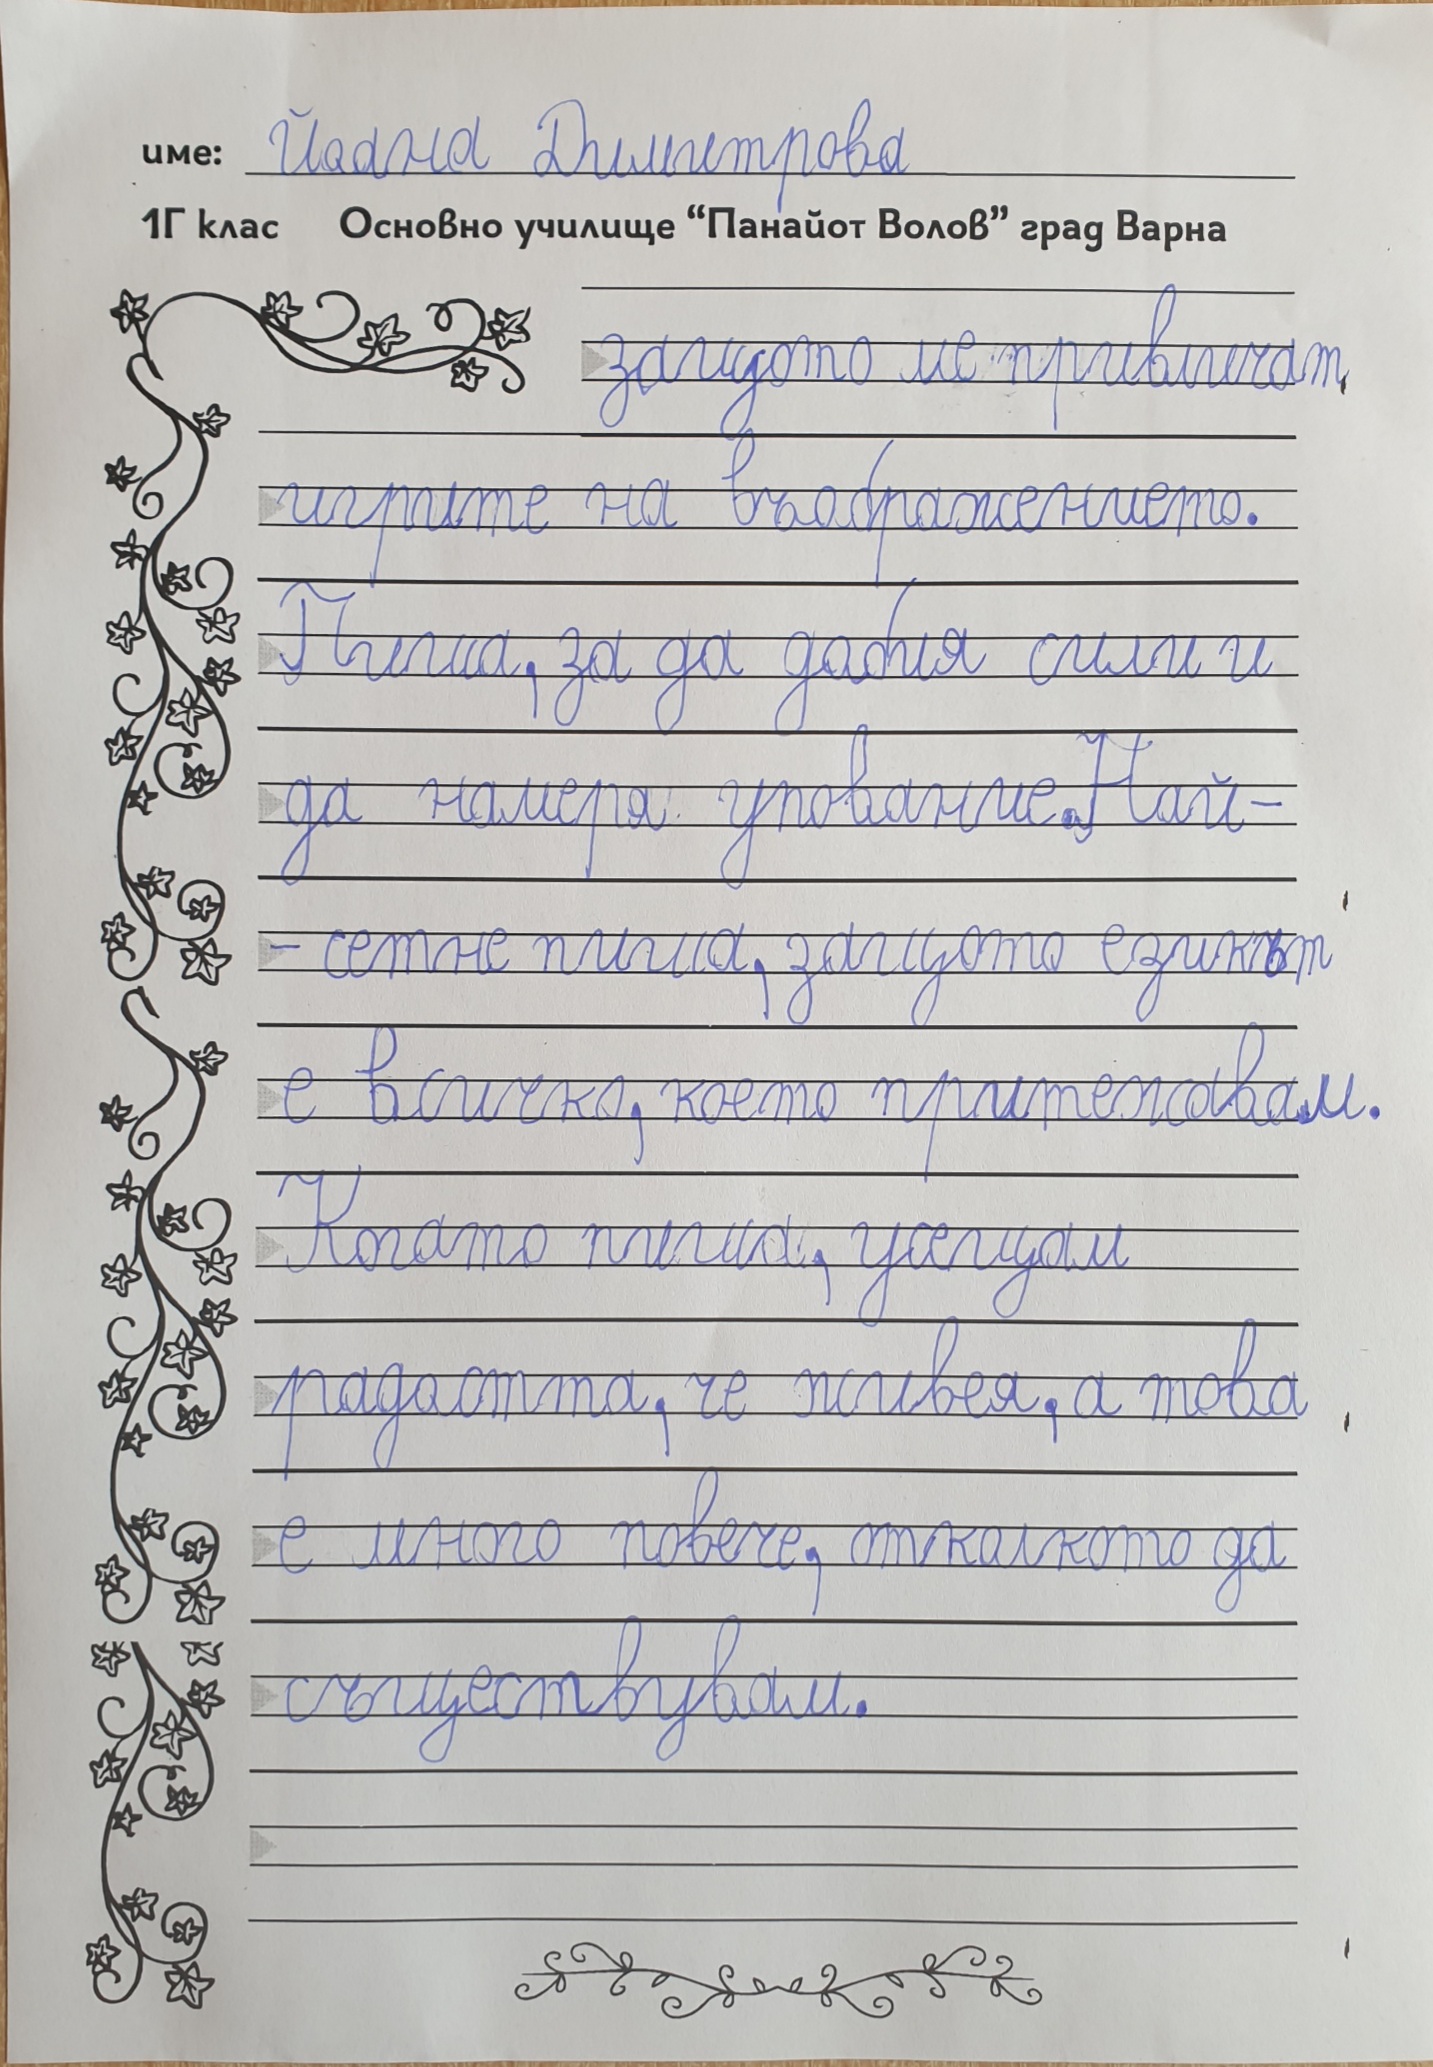 име: Йоана Димитрова
1Г клас Основно училище “Панайот Волов” град Варна
защото ме привличат
игрите на въображението.
Пиша, за да добия сили и
да намеря упование. Най-
- сетне пиша, защото езикът
е всичко, което притежавам.
Когато пиша, усещам
радостта, че живея, а това
е много повече, отколкото да
съществувам.